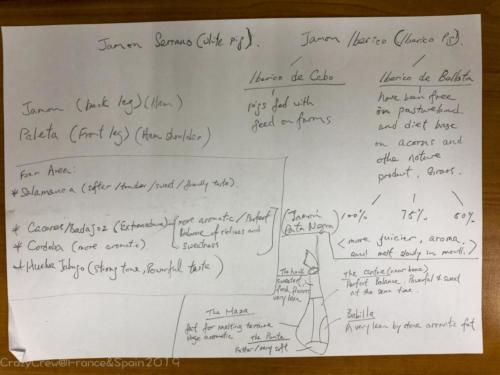 Jamon Serrano (white pig).
Jamon Iberico (Iberico Pig).
Iberico de Cebo
pigs fed with
feed on farms
Iberico de Bellota
have been free
on pastureland
and diet base
on acorns and
other nature
product, grass.
Jamon (back leg) (Ham)
Paleta (Front leg) (Ham shoulder)
Four Area:
* Salamanca (softer/tender/sweet/friendly taste).
* Caceres/Badajoz (Extremadura) (more aromatic / Perfect
balance of richness and
sweetness
* Cordoba (more aromatic)
* Huelva Jabugo (strong tone, Powerful taste)
(Jamon
Pata Negra)
100%
75%
50%
< more juicier, aroma,
and melt slowly in mouth.
The hock
sweetest
very lean
The centre (near bone)
Perfect balance. Powerful & sweet
at the same time.
The Maza
fat for melting texture
huge aromatic
The Punta
Fatter/very soft
Babilla
A very lean by dense aromatic fat
CrazyCrew@France&Spain2019